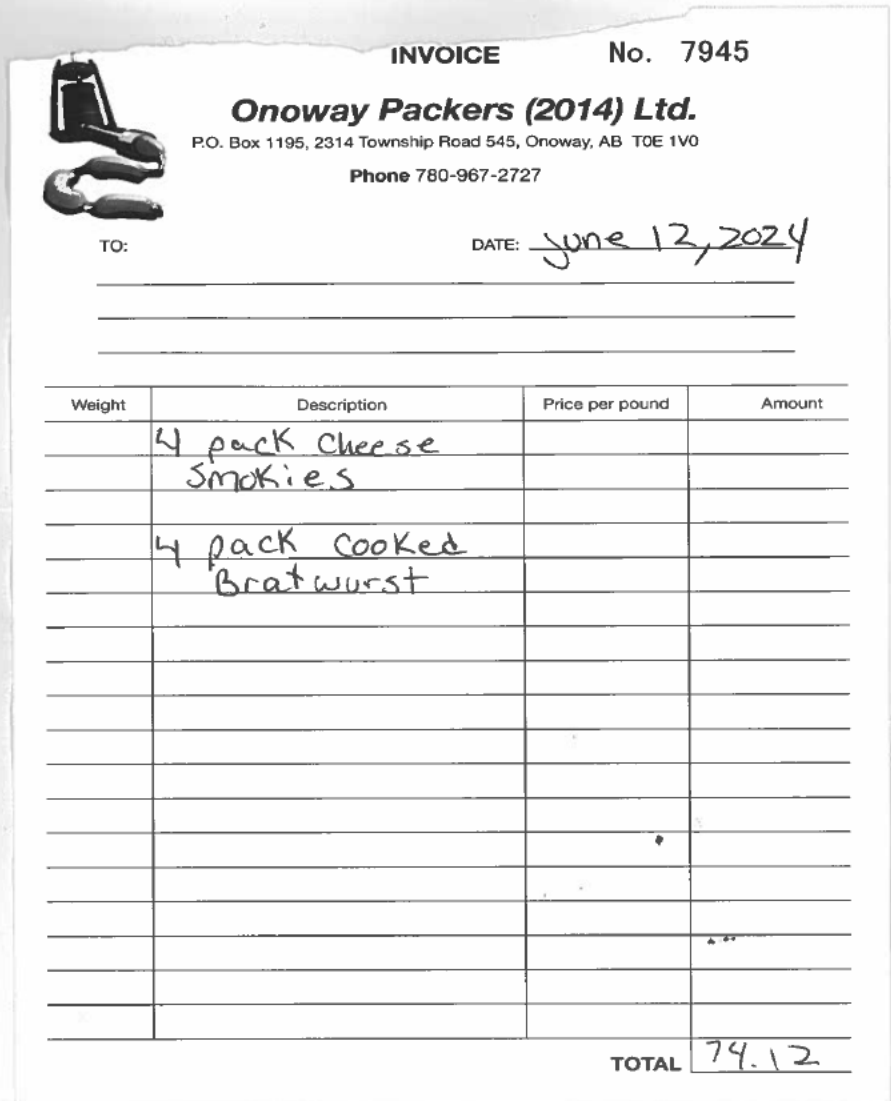 INVOICE No. 7945
Onoway Packers (2014) Ltd.
P.O. Box 1195, 2314 Township Road 545, Onoway, AB T0E 1V0
Phone 780-967-2727
TO: DATE: June 12, 2024
Weight Description Price per pound Amount
4 pack Cheese
Smokies
4 pack Cooked
Bratwurst
TOTAL 74.12